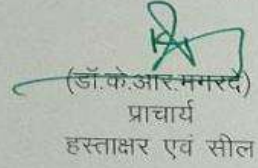 (डॉ.के.आर.मगरदे)
प्राचार्य
हस्ताक्षर एवं सील